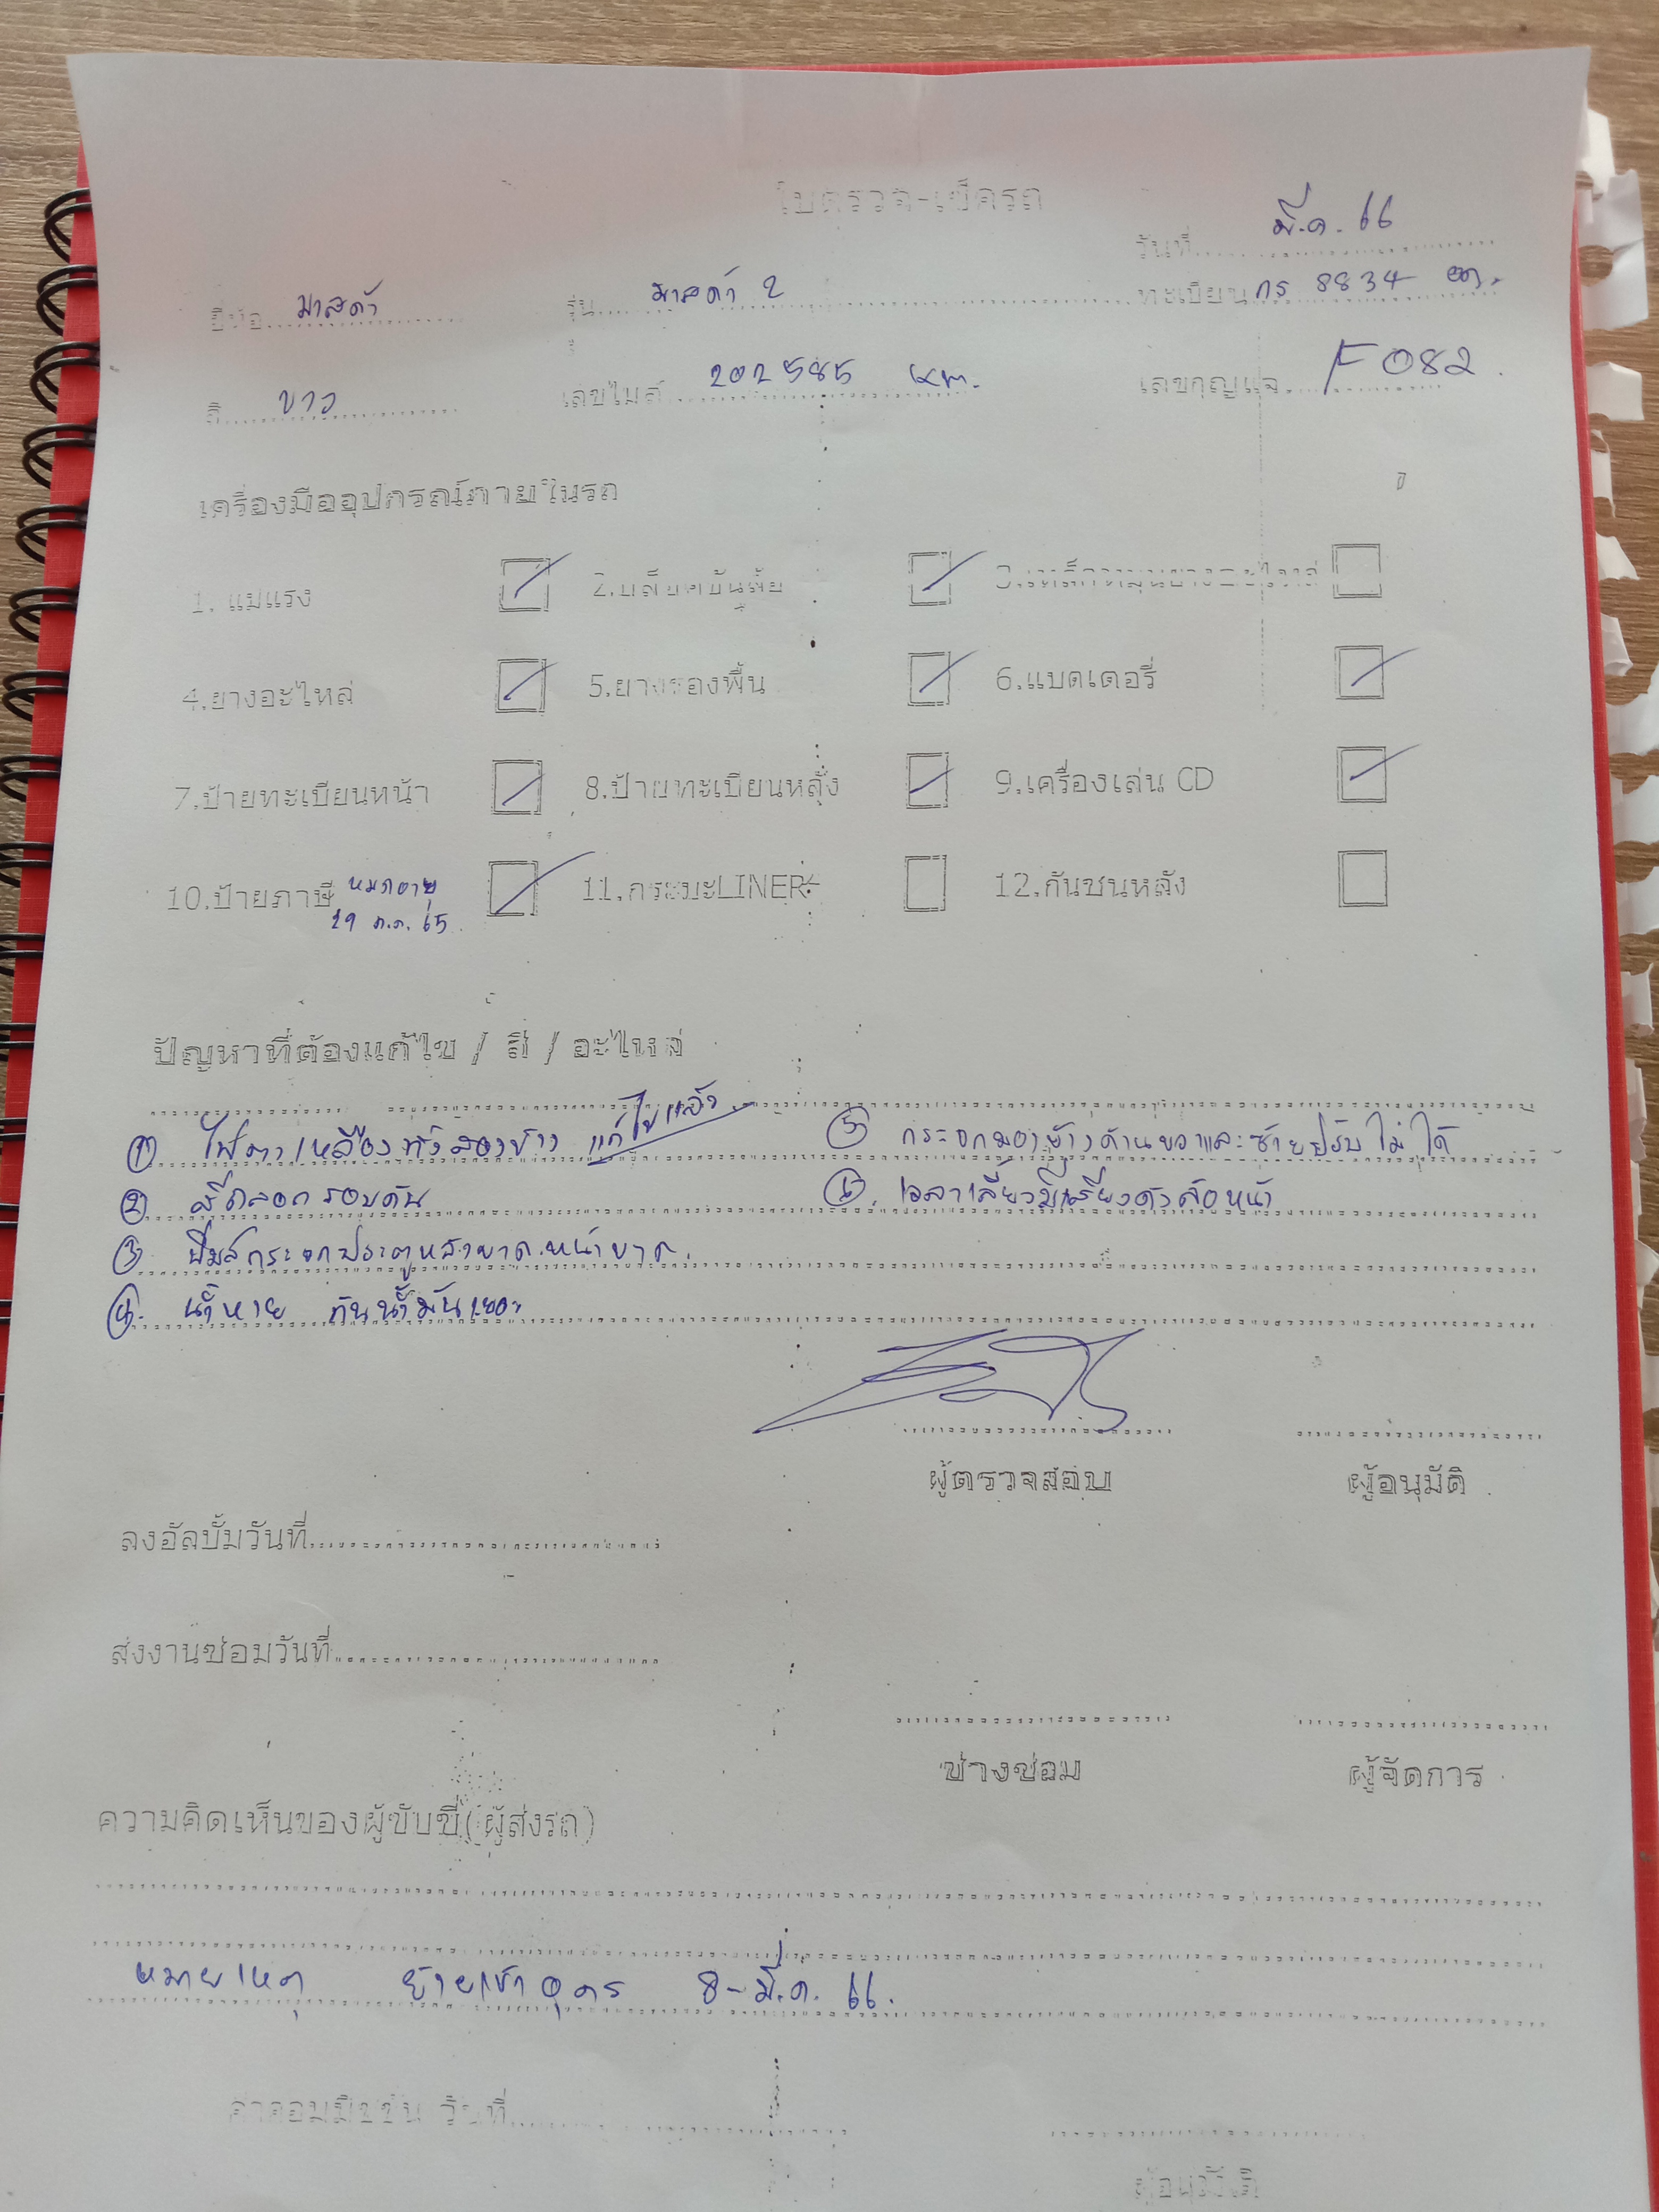 ใบตรวจ-เช็ครถ
วันที่ มี.ค. 66
ยี่ห้อ มาสด้า รุ่น มาสด้า 2 ทะเบียน กร 8834
สี ขาว เลขไมล์ 202585 km. เลขกุญแจ F082
เครื่องมืออุปกรณ์ภายในรถ
1. แม่แรง 2.บล็อคขันล้อ
4.ยางอะไหล่ 5.ยางรองพื้น 6.แบตเตอรี่
7.ป้ายทะเบียนหน้า 8.ป้ายทะเบียนหลัง 9.เครื่องเล่น CD
10.ป้ายภาษี หมดอายุ 11.กระบะLINER 12.กันชนหลัง
65
ปัญหาที่ต้องแก้ไข / สี / อะไหล่
① ไฟตาเหลืองทั้งสองข้าง แก้ไขแล้ว ⑤ กระจกมองข้างด้านขวาและซ้ายปรับไม่ได้
② สีถลอกรอบคัน ⑥. เวลาเลี้ยวมีเสียงดังล้อหน้า
③ ฟิมล์กระจกประตูหลังขาด.หน้าขาด.
④. น้ำหาย กินน้ำมันเยอะ
ผู้ตรวจสอบ ผู้อนุมัติ
ลงอัลบั้มวันที่
ส่งงานซ่อมวันที่
ช่างซ่อม ผู้จัดการ
ความคิดเห็นของผู้ขับขี่(ผู้ส่งรถ)
หมายเหตุ ย้ายเข้าอุดร 8-มี.ค. 66.
ค่าคอมมิชชั่น วันที่
ผู้อนุมัติ